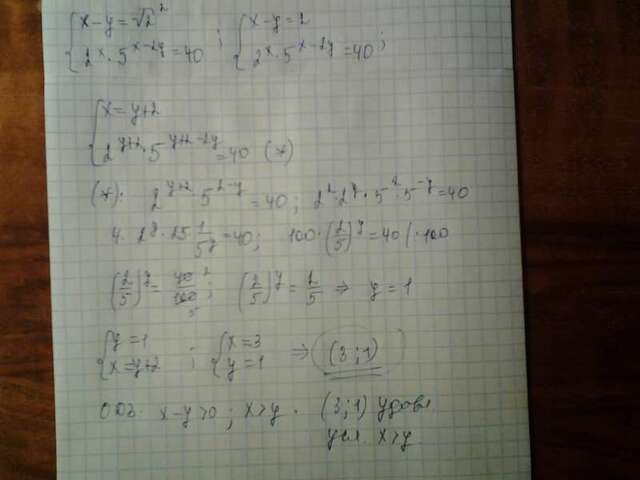 {x-y=√2² ; {x-y=2
{2^x·5^(x-2y)=40 ; {2^x·5^(x-2y)=40;
{x=y+2
{2^(y+2)·5^(y+2-2y)=40 (*)
(*): 2^(y+2)·5^(2-y)=40; 2²·2^y·5²·5^(-y)=40
4·2^y·25·1/5^y=40; 100·(2/5)^y=40 |:100
(2/5)^y=40/100; (2/5)^y=2/5 ⇒ y=1
{y=1 ; {x=3 ⇒ (3;1)
{x=y+2 {y=1
ОДЗ: x-y>0; x>y. (3;1) удовл
усл. x>y